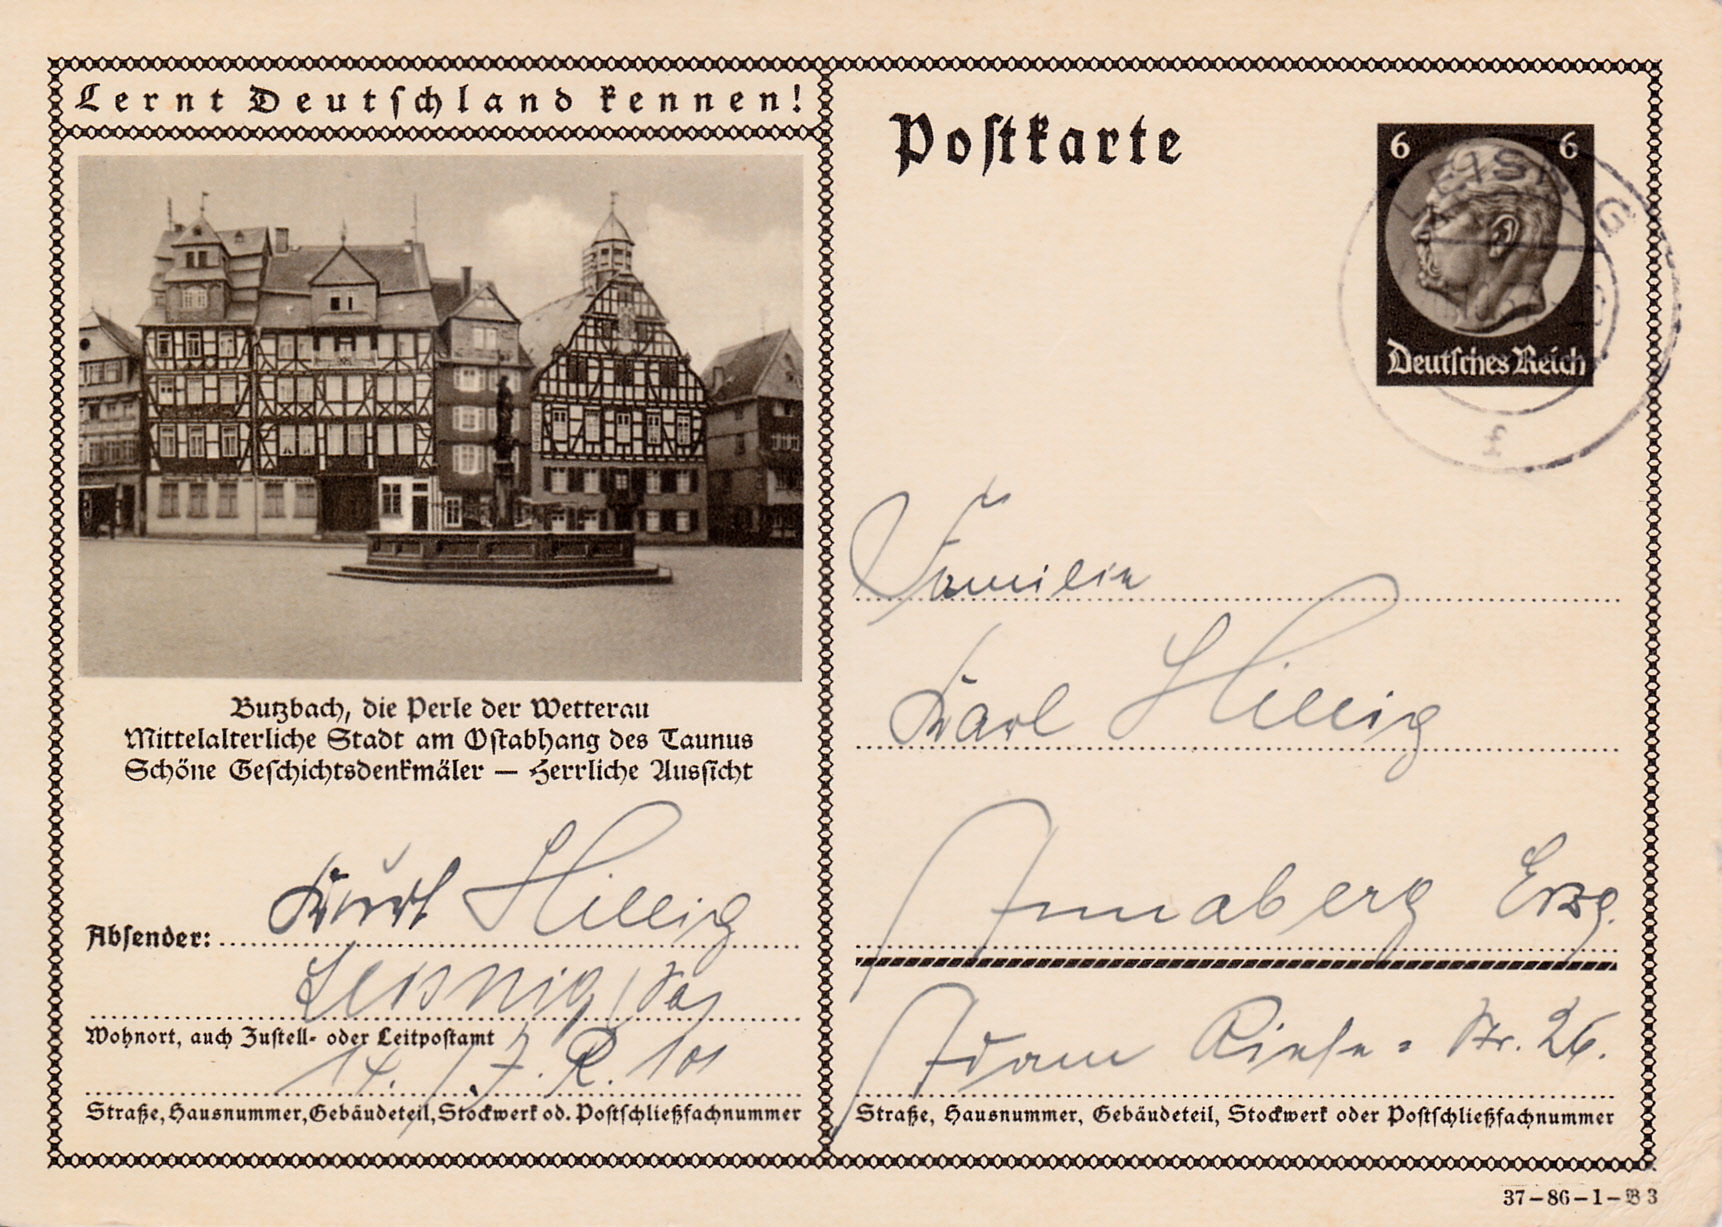 Lernt Deutschland kennen!
Butzbach, die Perle der Wetterau
Mittelalterliche Stadt am Ostabhang des Taunus
Schöne Geschichtsdenkmäler — Herrliche Aussicht
Absender: Kurt Hillig
Leisnig/Sa,
Wohnort, auch Zustell- oder Leitpostamt
14. / J. R. 101
Straße, Hausnummer, Gebäudeteil, Stockwerk od. Postschließfachnummer
Postkarte
6 6
Deutsches Reich
LEISNIG
f
Familie
Karl Hillig
Annaberg Erzg.
Adam Riese = Str. 26.
Straße, Hausnummer, Gebäudeteil, Stockwerk oder Postschließfachnummer
37–86–1–B 3